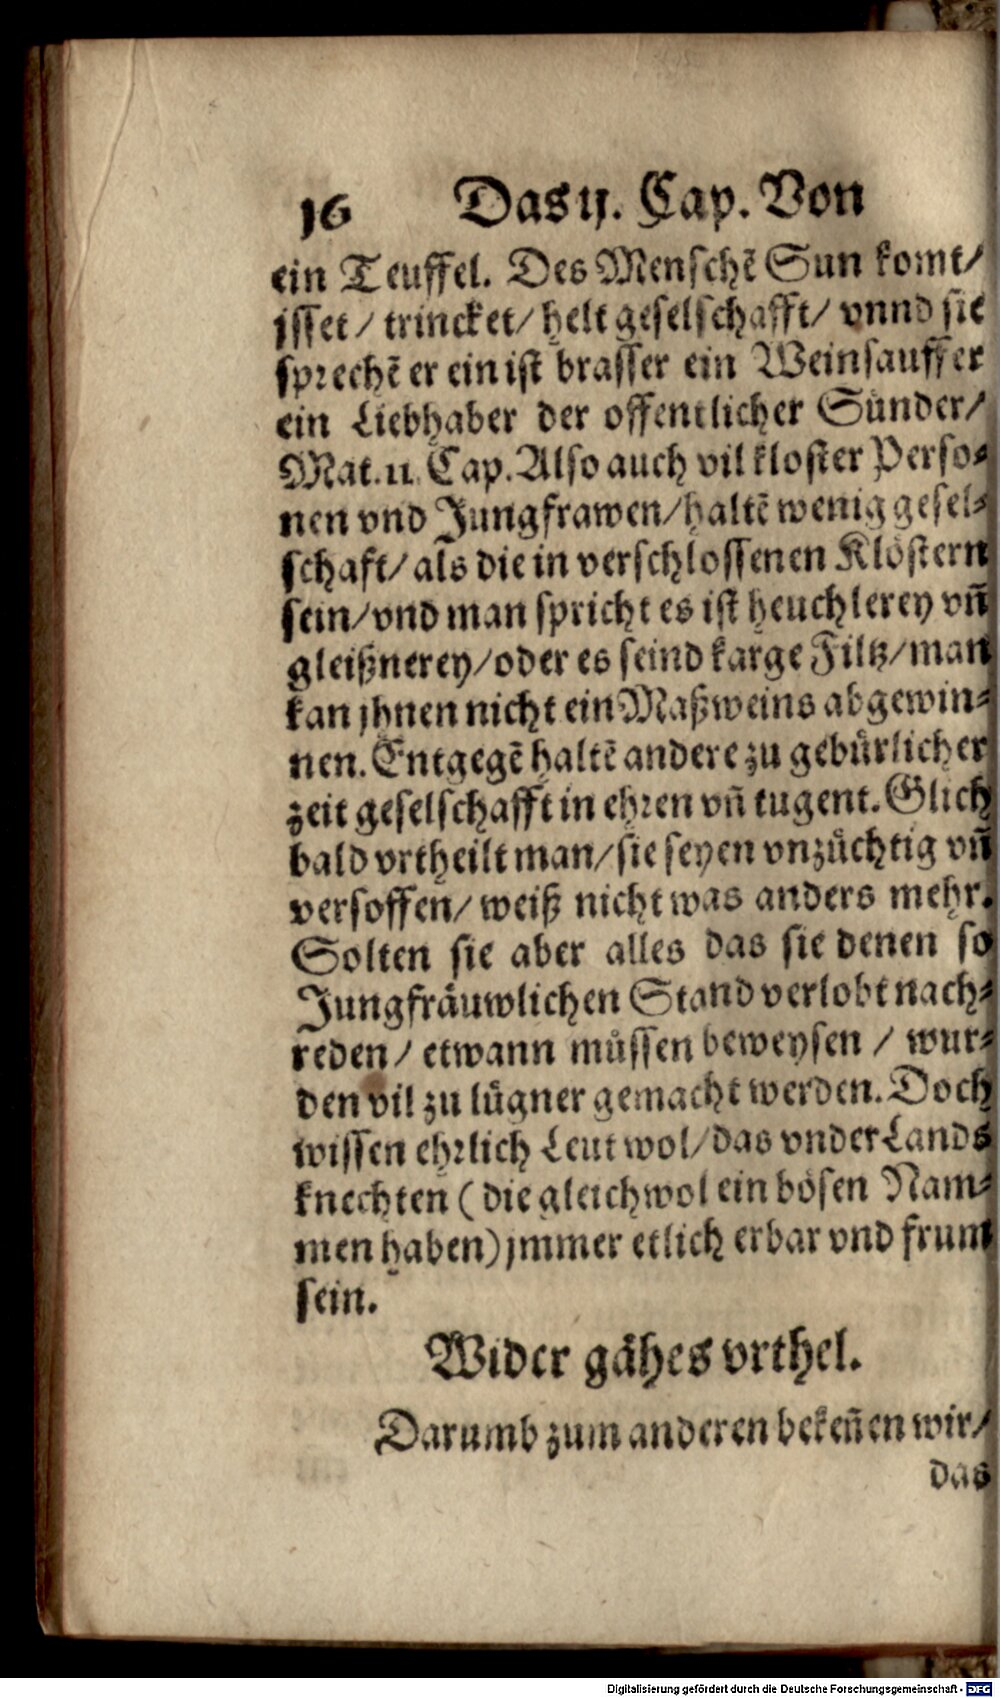 16 Das ij. Cap. Von
ein Teuffel. Des Menschẽ Sun komt/
jsset / trincket/ helt geselschafft/ vnnd sie
sprechẽ er ein ist brasser ein Weinsauffer
ein Liebhaber der offentlicher Sünder/
Mat. 11. Cap. Also auch vil kloster Perso⸗
nen vnd Jungfrawen/haltẽ wenig gesel⸗
schaft/ als die in verschlossenen Klöstern
sein/vnd man spricht es ist heuchlerey vñ
gleißnerey/oder es seind karge Filtz/man
kan jhnen nicht ein Maßweins abgewin⸗
nen. Entgegẽ haltẽ andere zu gebürlicher
zeit geselschafft in ehren vñ tugent. Glich
bald vrtheilt man/sie seyen vnzüchtig vñ
versoffen/ weiß nicht was anders mehr.
Solten sie aber alles das sie denen so
Jungfräuwlichen Stand verlobt nach⸗
reden / etwann müssen beweysen / wur⸗
den vil zu lügner gemacht werden. Doch
wissen ehrlich Leut wol/das vnder Lands
knechten ( die gleichwol ein bösen Nam⸗
men haben) jmmer etlich erbar vnd frum
sein.
Wider gähes vrthel.
Darumb zum anderen bekeñen wir/
das
Digitalisierung gefördert durch die Deutsche Forschungsgemeinschaft - DFG